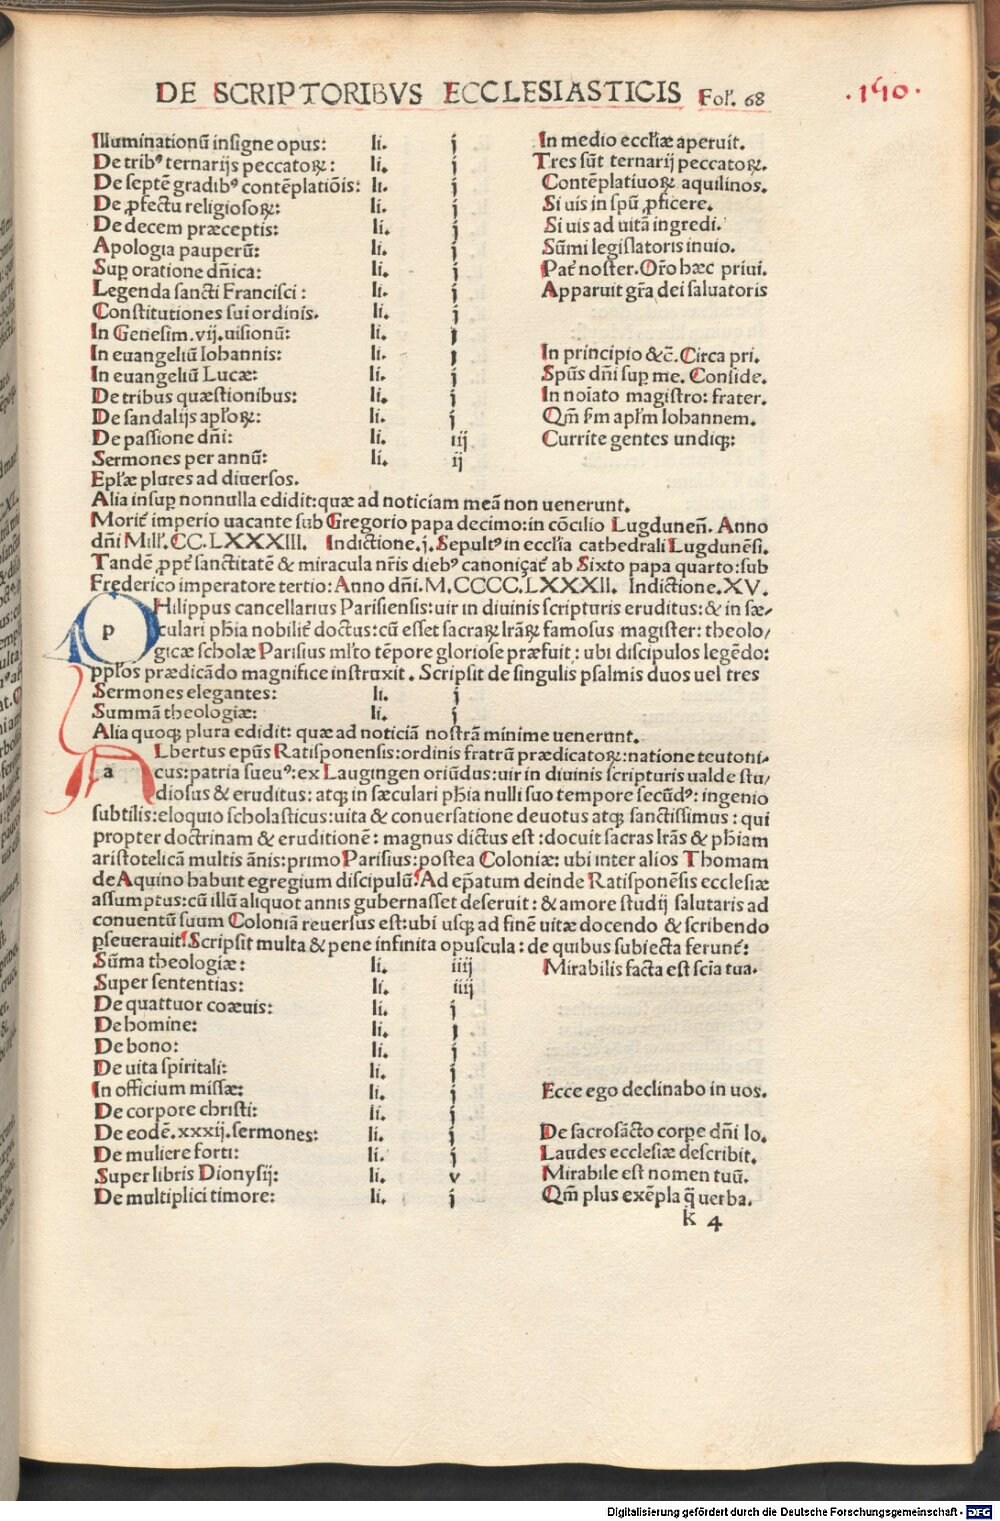 DE SCRIPTORIBVS ECCLESIASTICIS Fol'. 68 .140.
Illuminationũ insigne opus: li. j In medio eccl'iæ aperuit.
De tribꝰ ternarijs peccatoꝝ: li. j Tres sũt ternarij peccatoꝝ.
De septẽ gradibꝰ contẽplatiõis: li. j Contẽplatiuoꝝ aquilinos.
De ꝓfectu religiosoꝝ: li. j Si uis in spũ ꝓficere.
De decem præceptis: li. j Si uis ad uitã ingredi.
Apologia pauperũ: li. j Sũmi legislatoris inuio.
Suꝑ oratione dñica: li. j Pat̃ noster. Or̃o hæc priui.
Legenda sancti Francisci: li. j Apparuit gr̃a dei saluatoris
Constitutiones sui ordinis. li. j
In Genesim .vij. uisionũ: li. j
In euangeliũ Iohannis: li. j In principio &c̃. Circa pri.
In euangeliũ Lucæ: li. j Spũs dñi suꝑ me. Conside.
De tribus quæstionibus: li. j In noĩato magistro: frater.
De sandalijs apl'oꝝ: li. j Qm̃ fr̃m apl'm Iohannem.
De passione dñi: li. iij Currite gentes undiqꝫ:
Sermones per annũ: li. ij
Epl'æ plures ad diuersos.
Alia insuꝑ nonnulla edidit: quæ ad noticiam meã non uenerunt.
Morit̃ imperio uacante sub Gregorio papa decimo: in cõcilio Lugduneñ. Anno
dñi Mill'. CC. LXXXIII. Indictione .j. Sepultꝰ in eccl'ia cathedrali Lugdunẽsi.
Tandẽ ꝓpt̃ sanctitatẽ & miracula nr̃is diebꝰ canonizat̃ ab Sixto papa quarto: sub
Frederico imperatore tertio: Anno dñi. M. CCCC. LXXXII. Indictione. XV.
p Hilippus cancellarius Parisiensis: uir in diuinis scripturis eruditus: & in sæ/
culari phĩa nobilit̃ doctus: cũ esset sacraꝝ lr̃aꝝ famosus magister: theolo/
gicæ scholæ Parisius ml'to tẽpore gloriose præfuit: ubi discipulos legẽdo:
ppl'os prædicãdo magnifice instruxit. Scripsit de singulis psalmis duos uel tres
Sermones elegantes: li. j
Summã theologiæ: li. j
Alia quoqꝫ plura edidit: quæ ad noticiã nostrã minime uenerunt.
a Lbertus epũs Ratisponensis: ordinis fratrũ prædicatoꝝ: natione teutoni/
cus: patria sueuꝰ: ex Laugingen oriũdus: uir in diuinis scripturis ualde stu/
diosus & eruditus: atqꝫ in sæculari phĩa nulli suo tempore secũdꝰ: ingenio
subtilis: eloquio scholasticus: uita & conuersatione deuotus atqꝫ sanctissimus: qui
propter doctrinam & eruditionẽ: magnus dictus est: docuit sacras lr̃as & phĩam
aristotelicã multis ãnis: primo Parisius: postea Coloniæ: ubi inter alios Thomam
de Aquino habuit egregium discipulũ. Ad ep̃atum deinde Ratisponẽsis ecclesiæ
assumptus: cũ illũ aliquot annis gubernasset deseruit: & amore studij salutaris ad
conuentũ suum Coloniã reuersus est: ubi usqꝫ ad finẽ uitæ docendo & scribendo
ꝑseuerauit. Scripsit multa & pene infinita opuscula: de quibus subiecta ferunt̃:
Sũma theologiæ: li. iiij Mirabilis facta est scĩa tua.
Super sententias: li. iiij
De quattuor coæuis: li. j
De homine: li. j
De bono: li. j
De uita spiritali: li. j
In officium missæ: li. j Ecce ego declinabo in uos.
De corpore christi: li. j
De eodẽ .xxxij. sermones: li. j De sacrosãcto corꝑe dñi Io.
De muliere forti: li. j Laudes ecclesiæ describit.
Super libris Dionysij: li. v Mirabile est nomen tuũ.
De multiplici timore: li. j Qm̃ plus exẽpla q̃ uerba.
k 4
Digitalisierung gefördert durch die Deutsche Forschungsgemeinschaft - DFG